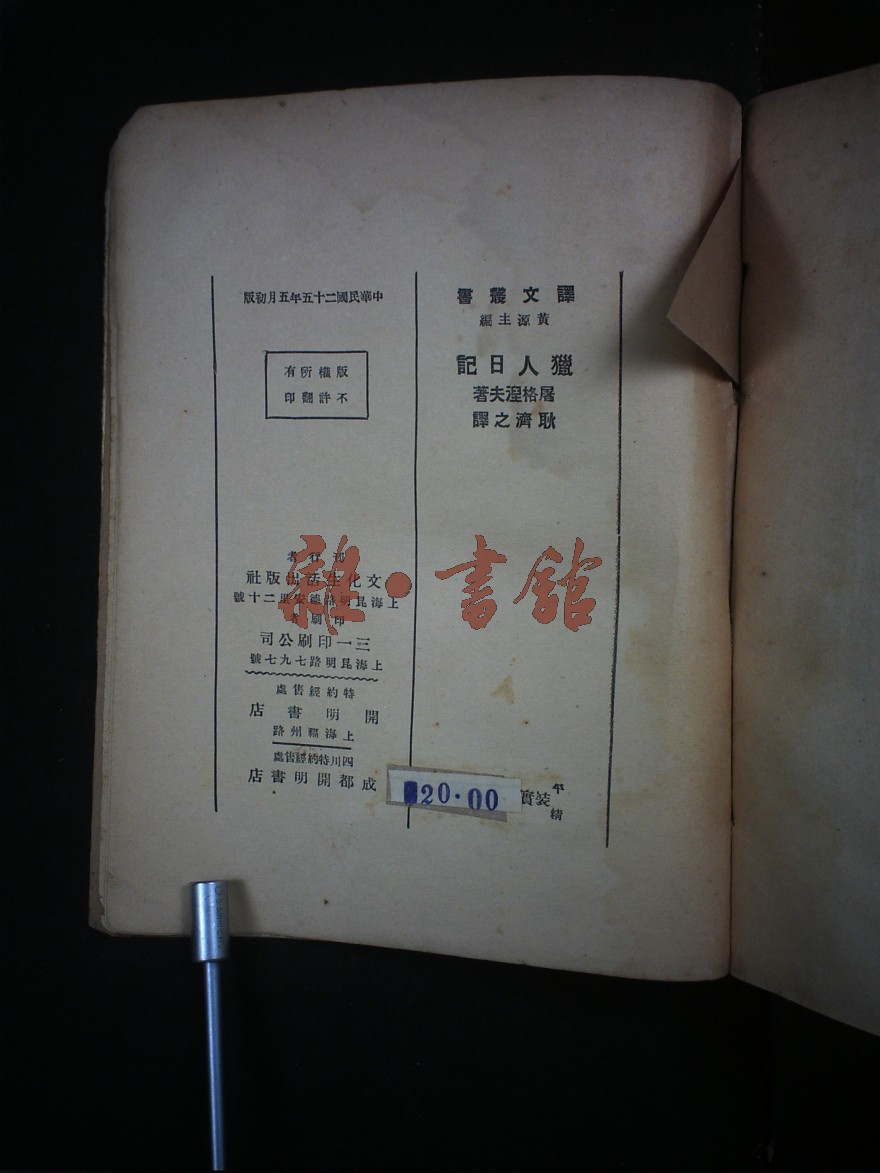 譯文叢書
黃源主編
獵人日記
屠格湼夫著
耿濟之譯
平
精
裝實
20.00
中華民國二十五年五月初版
版權所有
不許翻印
刊行者
文化生活出版社
上海昆明路德安里二十號
印刷者
三一印刷公司
上海昆明路七九七號
特約經售處
開明書店
上海福州路
四川特約經售處
成都開明書店
雜·書館